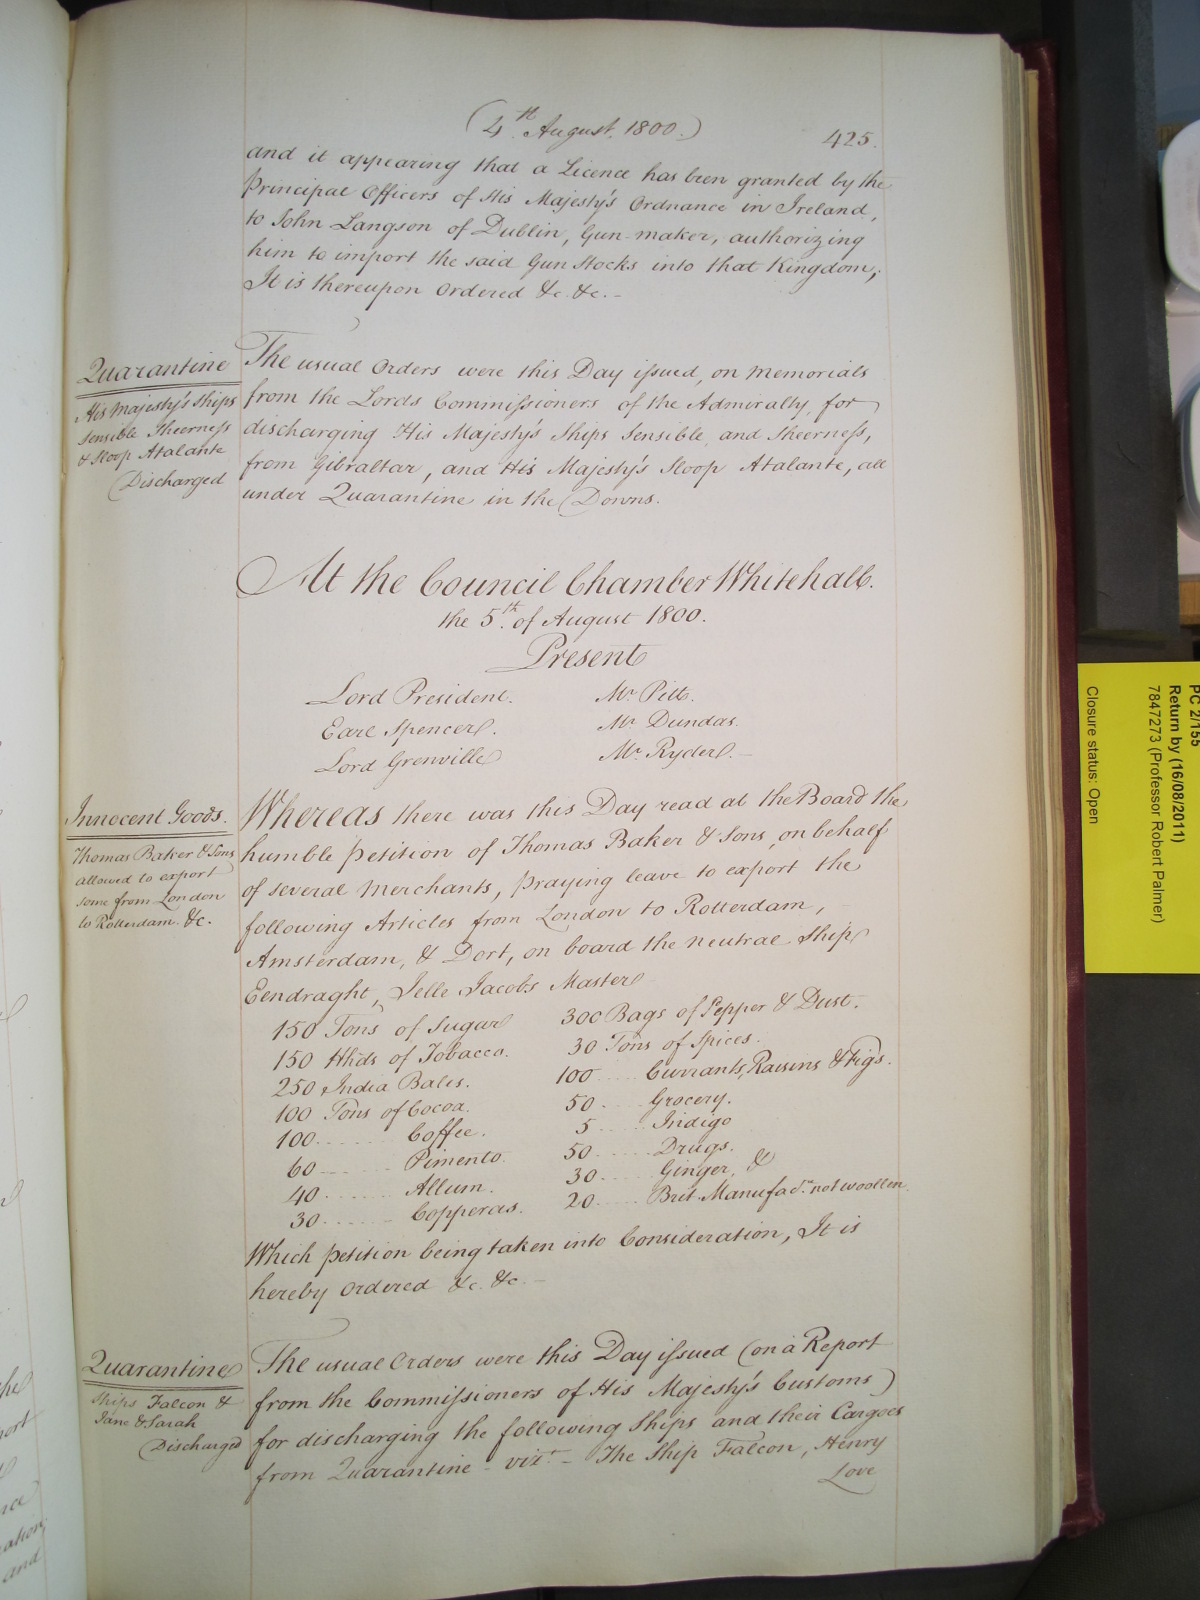 (4th August, 1800.)
425.
and it appearing that a Licence has been granted by the
Principal Officers of His Majesty's Ordnance in Ireland,
to John Langson of Dublin, Gun-maker, authorizing
him to import the said Gun Stocks into that Kingdom,
It is thereupon Ordered &c. &c. -
Quarantine
His Majesty's Ships
Sensible Sheerness
& Sloop Atalante
Discharged
The usual Orders were this Day issued, on Memorials
from the Lords Commissioners of the Admiralty, for
discharging His Majesty's Ships Sensible, and Sheerness,
from Gibraltar, and His Majesty's Sloop Atalante, all
under Quarantine in the Downs.
At the Council Chamber Whitehall.
the 5th of August 1800.
Present
Lord President. Mr. Pitt.
Earl Spencer. Mr. Dundas.
Lord Grenville Mr. Ryder. -
Innocent Goods.
Thomas Baker & Sons
allowed to export
some from London
to Rotterdam. &c.
Whereas there was this Day read at the Board the
humble Petition of Thomas Baker & Sons, on behalf
of several Merchants, praying leave to export the
following Articles from London to Rotterdam, -
Amsterdam, & Dort, on board the neutral Ship
Eendraght, Jelle Jacobs Master
150 Tons of Sugar 300 Bags of Pepper & Dust.
150 Hhds of Tobacco. 30 Tons of Spices.
250 India Bales. 100 .... Currants, Raisins & Figs.
100 Tons of Cocoa. 50 .... Grocery.
100 ....... Coffee. 5 .... Indigo
60 ....... Pimento. 50 .... Drugs.
40 ....... Allum. 30 .... Ginger, &
30 ....... Copperas. 20 .... Brit. Manufacs. not woollen.
Which petition being taken into Consideration, It is
hereby Ordered &c. &c. -
Quarantine
Ships Falcon &
Jane & Sarah
Discharged
The usual Orders were this Day issued (on a Report
from the Commissioners of His Majesty's Customs)
for discharging the following Ships and their Cargoes
from Quarantine - vizt. - The Ship Falcon, Henry
Love
PC 2/155
Return by (16/08/2011)
7847273 (Professor Robert Palmer)
Closure status: Open